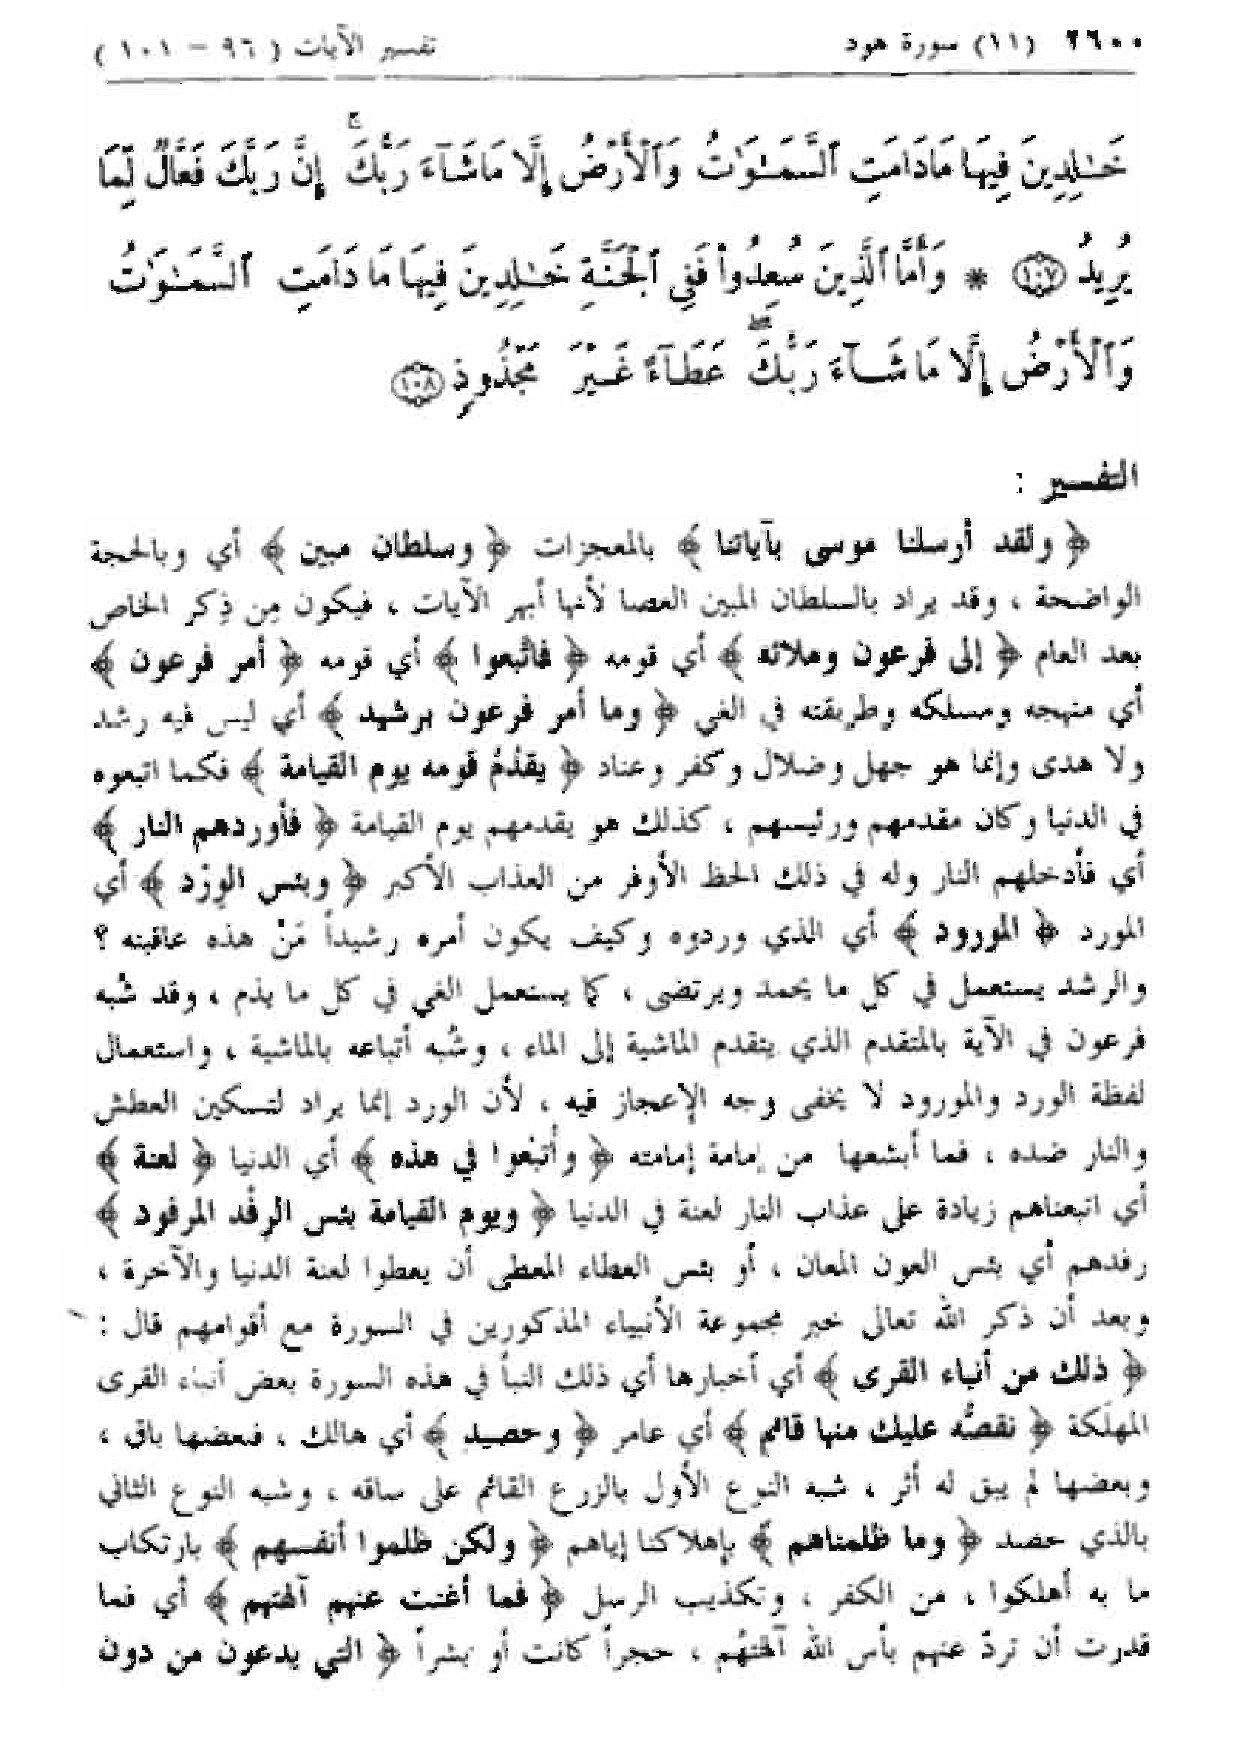 ٢٦٠٠ (١١) سورة هود تفسير الآيات ( ٩٦ – ١٠١ )
خَـٰلِدِينَ فِيهَا مَا دَامَتِ ٱلسَّمَـٰوَٰتُ وَٱلْأَرْضُ إِلَّا مَا شَآءَ رَبُّكَ ۚ إِنَّ رَبَّكَ فَعَّالٌ لِّمَا
يُرِيدُ ١٠٧ * وَأَمَّا ٱلَّذِينَ سُعِدُوا۟ فَفِى ٱلْجَنَّةِ خَـٰلِدِينَ فِيهَا مَا دَامَتِ ٱلسَّمَـٰوَٰتُ
وَٱلْأَرْضُ إِلَّا مَا شَآءَ رَبُّكَ ۖ عَطَآءً غَيْرَ مَجْذُوذٍ ١٠٨
التفسير :
﴿ ولقد أرسلنا موسى بآياتنا ﴾ بالمعجزات ﴿ وسلطان مبين ﴾ أي وبالحجة
الواضحة ، وقد يراد بالسلطان المبين العصا لأنها أبهر الآيات ، فيكون مِن ذِكر الخاص
بعد العام ﴿ إلى فرعون وملائه ﴾ أي قومه ﴿ فاتَّبعوا ﴾ أي قومه ﴿ أمر فرعون ﴾
أي منهجه ومسلكه وطريقته في الغي ﴿ وما أمر فرعون برشيد ﴾ أي ليس فيه رشد
ولا هدى وإنما هو جهل وضلال وكفر وعناد ﴿ يقدُمُ قومه يوم القيامة ﴾ فكما اتبعوه
في الدنيا وكان مقدمهم ورئيسهم ، كذلك هو يقدمهم يوم القيامة ﴿ فأوردهم النار ﴾
أي فأدخلهم النار وله في ذلك الحظ الأوفر من العذاب الأكبر ﴿ وبئس الوِرْد ﴾ أي
المورد ﴿ المورود ﴾ أي الذي وردوه وكيف يكون أمره رشيداً مَنْ هذه عاقبته ؟
والرشد يستعمل في كل ما يحمد ويرتضى ، كما يستعمل الغي في كل ما يذم ، وقد شُبه
فرعون في الآية بالمتقدم الذي يتقدم الماشية إلى الماء ، وشُبه أتباعه بالماشية ، واستعمال
لفظة الورد والمورود لا يخفى وجه الإعجاز فيه ، لأن الورد إنما يراد لتسكين العطش
والنار ضده ، فما أبشعها من إمامة إمامته ﴿ وأُتبْعوا في هذه ﴾ أي الدنيا ﴿ لعنة ﴾
أي اتبعناهم زيادة على عذاب النار لعنة في الدنيا ﴿ ويوم القيامة بئس الرِفْد المرفود ﴾
رفدهم أي بئس العون المعان ، أو بئس العطاء المعطى أن يعطوا لعنة الدنيا والآخرة ،
وبعد أن ذكر الله تعالى خبر مجموعة الأنبياء المذكورين في السورة مع أقوامهم قال :
﴿ ذلك من أنباء القرى ﴾ أي أخبارها أي ذلك النبأ في هذه السورة بعض أنباء القرى
المهلَكة ﴿ نقصُّه عليك منها قائم ﴾ أي عامر ﴿ وحصيد ﴾ أي هالك ، فبعضها باق ،
وبعضها لم يبق له أثر ، شبه النوع الأول بالزرع القائم على ساقه ، وشبه النوع الثاني
بالذي حصد ﴿ وما ظلمناهم ﴾ بإهلاكنا إياهم ﴿ ولكن ظلموا أنفسهم ﴾ بارتكاب
ما به أهلكوا ، من الكفر ، وتكذيب الرسل ﴿ فما أغنت عنهم آلهتهم ﴾ أي فما
قدرت أن تردّ عنهم بأس الله آلهتُهم ، حجراً كانت أو بشراً ﴿ التي يدعون من دون